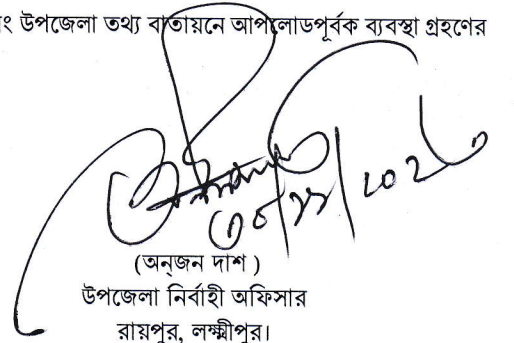 ং উপজেলা তথ্য বাতায়নে আপলোডপূর্বক ব্যবস্থা গ্রহণের
(অনজন দাশ )
উপজেলা নির্বাহী অফিসার
রায়পুর, লক্ষ্মীপুর।